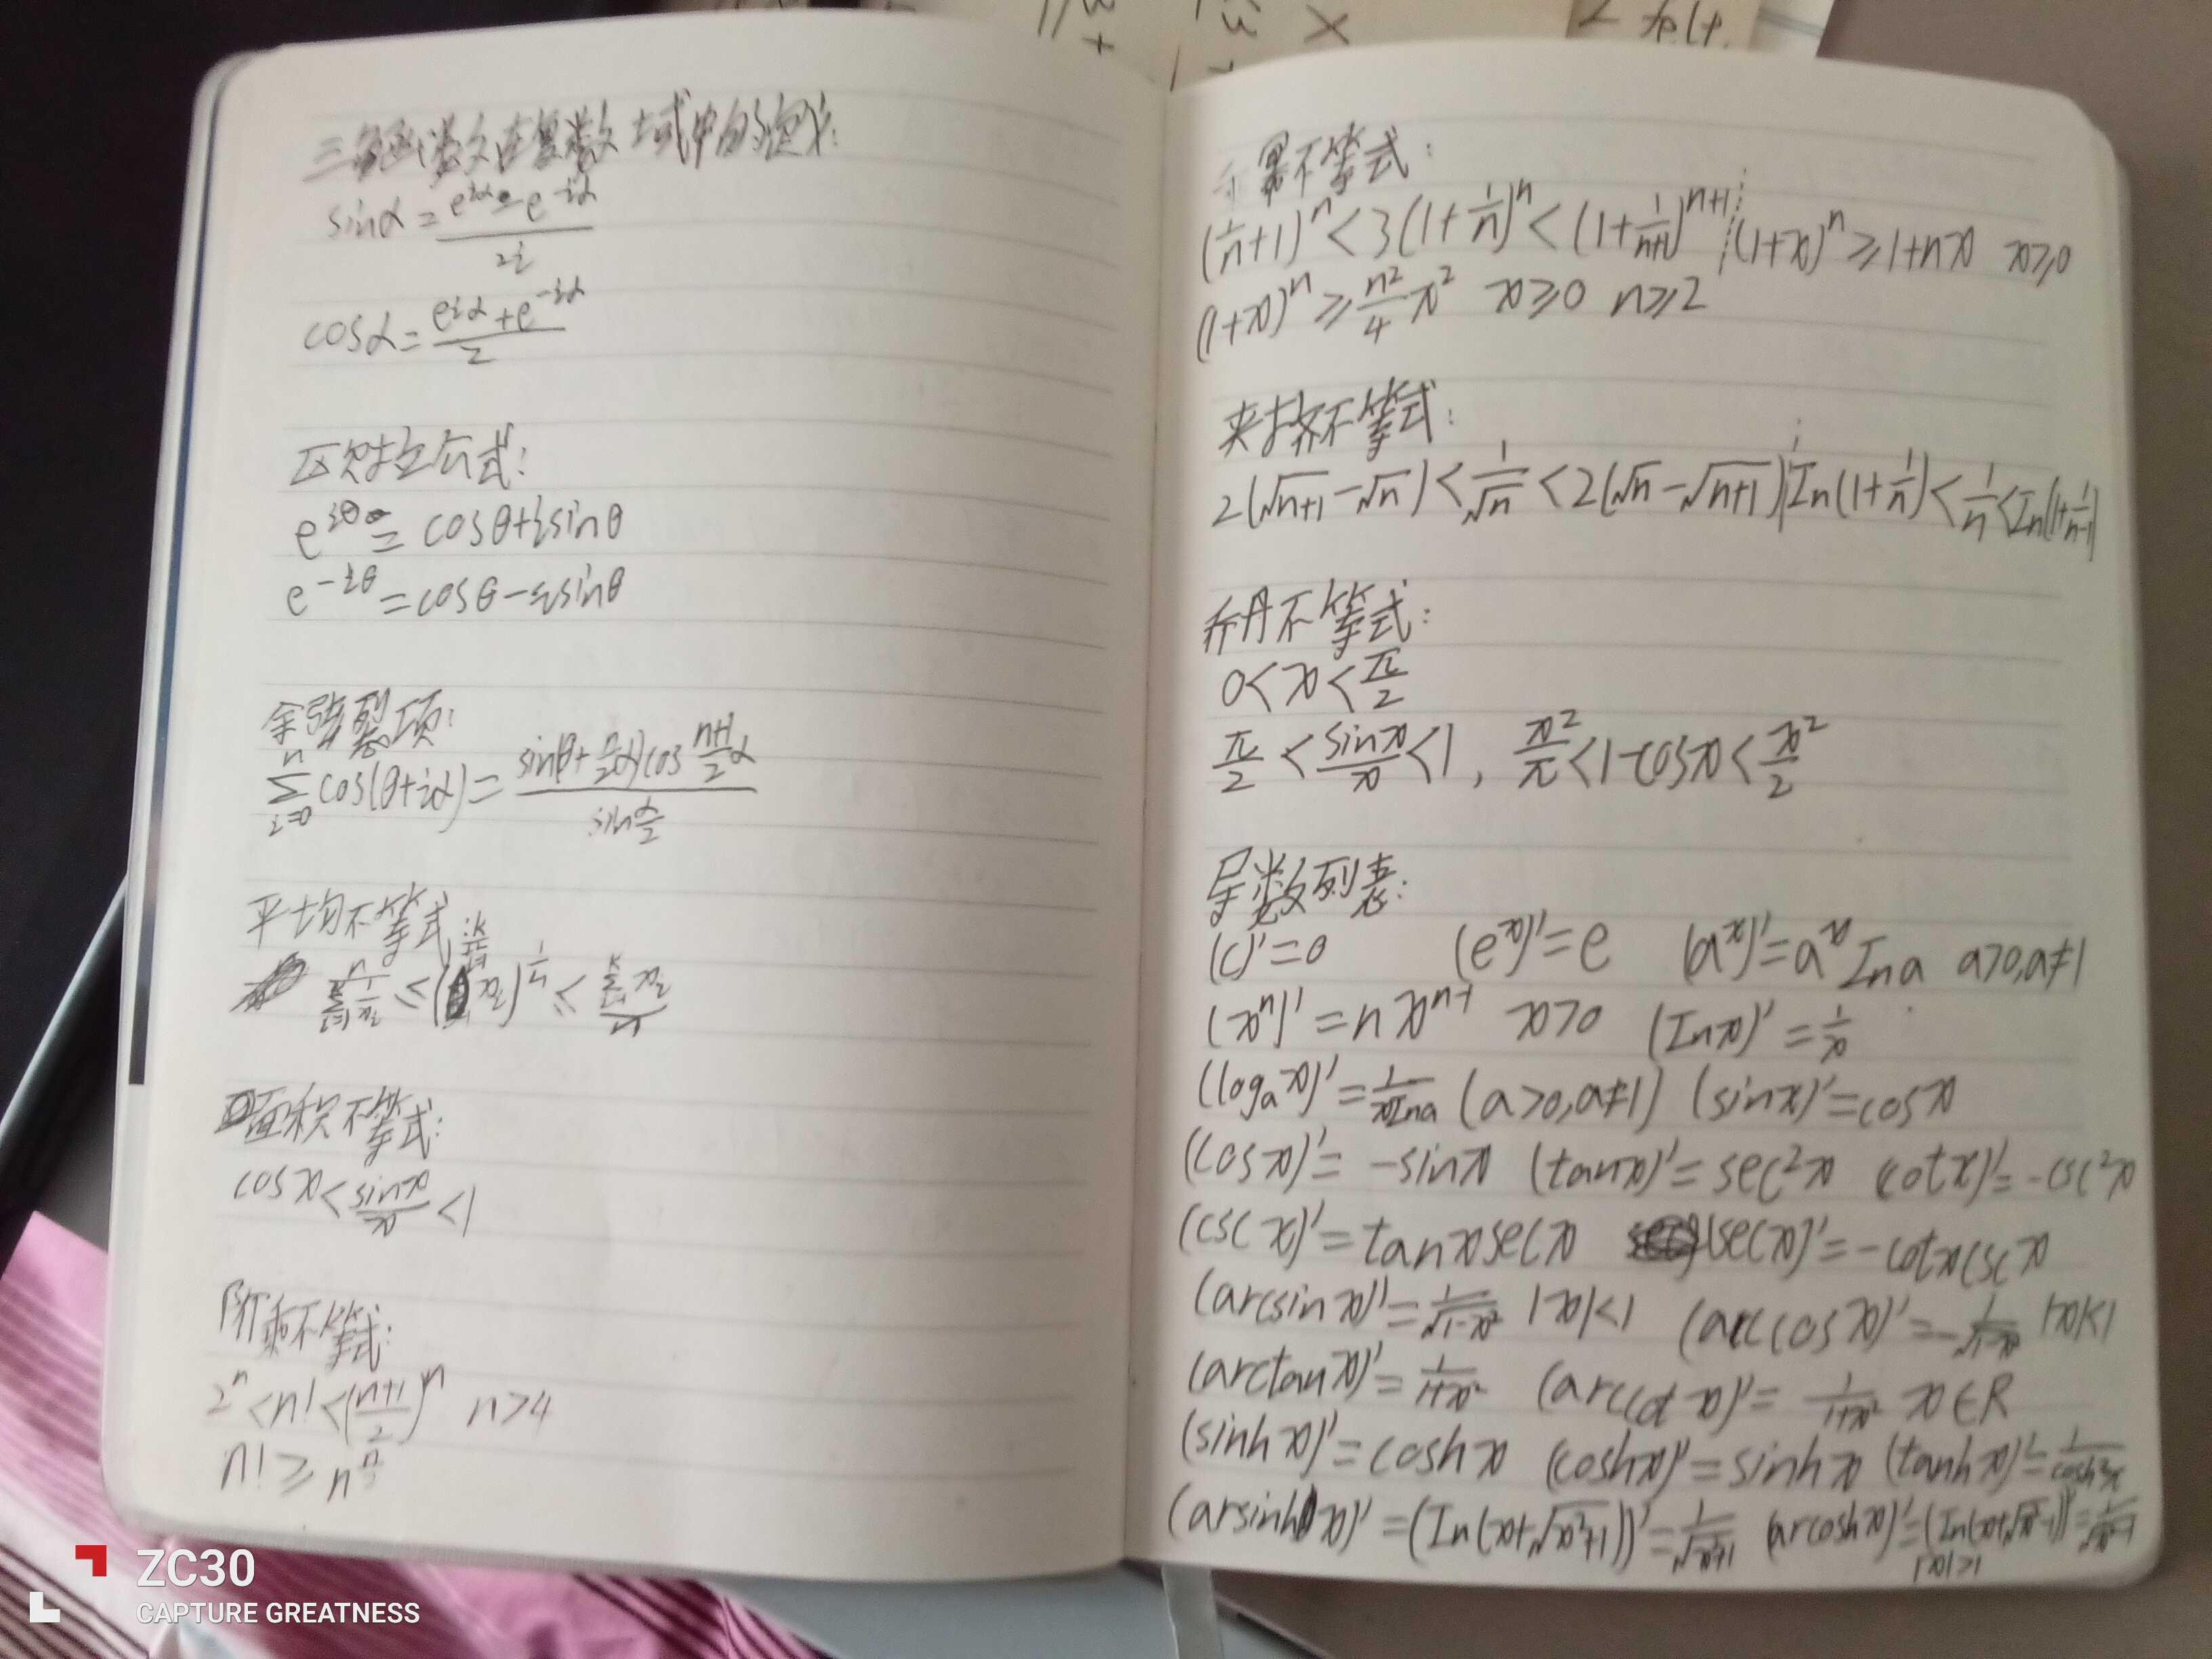 三角函数在复数域中的定义:
sinα = (e^{iα} - e^{-iα})/2i
cosα = (e^{iα} + e^{-iα})/2
公式:
e^{iθ} = cosθ+isinθ
e^{-iθ} = cosθ-isinθ
余弦裂项:
∑_{i=0}^{n} cos(θ+iα) = sin(θ+\frac{n}{2}α)cos\frac{n+1}{2}α / sin\frac{α}{2}
平均不等式:
n/(∑_{i=1}^{k} 1/x_i) ≤ (∏_{i=1}^{k} x_i)^{1/n} ≤ (∑_{i=1}^{k} x_i)/n
面积不等式:
cosx < sinx/x < 1
阶乘不等式:
2^n < n! < (\frac{n+1}{2})^n n>4
n! ≥ n^{\frac{n}{2}}
幂不等式:
(1/n+1)^n < 3 (1+1/n)^n < (1+\frac{1}{n+1})^{n+1} (1+x)^n ≥ 1+nx x≥0
(1+x)^n ≥ \frac{n^2}{4}x^2 x≥0 n≥2
夹挤不等式:
2(√n+1 - √n) < 1/√n < 2(√n - √n+1) In(1+1/n) < 1/n < In(1+\frac{1}{n-1})
乔丹不等式:
0 < x < π/2
π/2 < sinx/x < 1, x²/π < 1-cosx < x²/2
导数列表:
(c)'=0 (e^x)'=e (a^x)'=a^x Ina a>0,a≠1
(x^n)'=nx^{n-1} x>0 (Inx)'=1/x
(log_a x)'=\frac{1}{xIna} (a>0,a≠1) (sinx)'=cosx
(cosx)'= -sinx (tanx)'=sec²x (cotx)'=-csc²x
(cscx)'=tanxsecx (secx)'=-cotxcscx
(arcsinx)'=\frac{1}{√1-x²} |x|<1 (arccosx)'=-\frac{1}{√1-x²} |x|<1
(arctanx)'=\frac{1}{1+x²} (arccotx)'= \frac{1}{1+x²} x∈R
(sinhx)'=coshx (coshx)'=sinhx (tanhx)'=\frac{1}{cosh²x}
(arsinhx)'=(In(x+√x²+1))'=\frac{1}{√x²+1} (arcoshx)'=(In(x+√x²-1))'=\frac{1}{√x²-1}
|x|>1
ZC30
CAPTURE GREATNESS